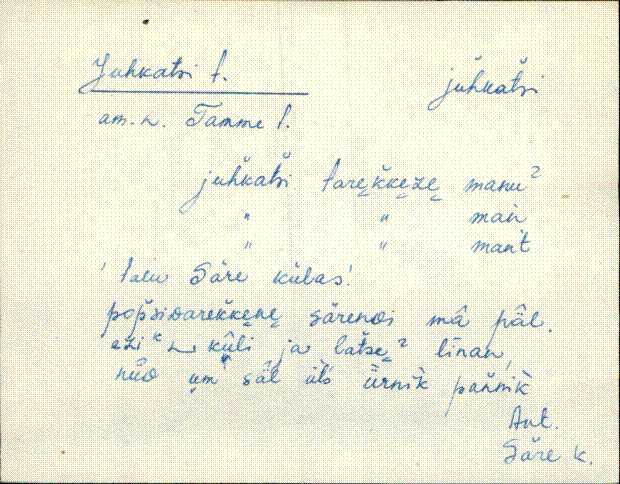 Juhkatsi t. juhkatsi
am.n. Tamme t.
juhkatsi tarękkęzę manu²
" " mań
" " mańt
'talu Säre külas'
popsidarekkęnę särendi mâ pǟl.
ezi külı̄ ja latsę² līnan,
nüd um sǟl üt's ǖrnik pańnik
Ant.
Säre k.